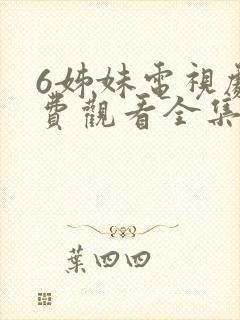 6姊妹電視劇
費觀看全集
葉四四